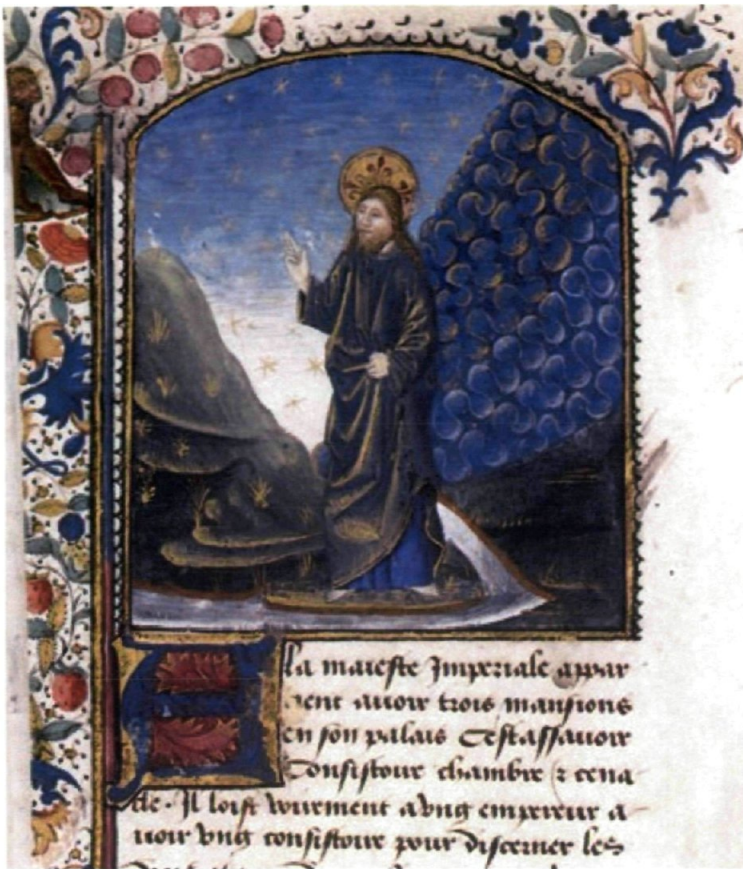 A la maieste Imperiale appar
tient auoir trois mansions
en son palais Cestassauoir
Consistoire chambre & cena
cle. Il loist vrayement a vng empereur a
uoir vng consistoire pour discerner les